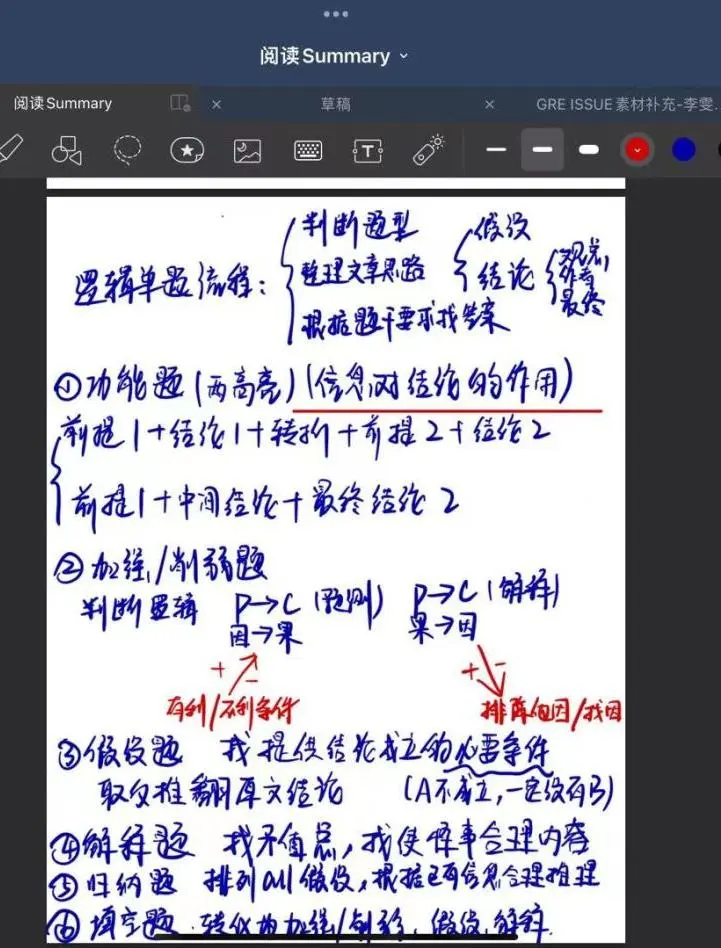 阅读Summary
阅读Summary
草稿
GRE ISSUE素材补充-李雯.
T
逻辑单题流程:
判断题型
整理文章思路
根据题干要求找答案
假设
结论
观点
作者
最终
①功能题(两高亮)(信息对结论的作用)
前提1+结论1+转折+前提2+结论2
前提1+中间结论+最终结论2
②加强/削弱题
判断逻辑 P→C(预测) P→C(解释)
因→果 果→因
+ - + -
有利/不利条件 排除他因/找因
③假设题 找提供结论成立的必要条件
取反推翻原文结论 (A不成立,一定没有B)
④解释题 找矛盾点,找使怪事合理内容
⑤归纳题 排列all假设,根据已有信息合理推理
⑥填空题 转化为加强/削弱,假设,解释.